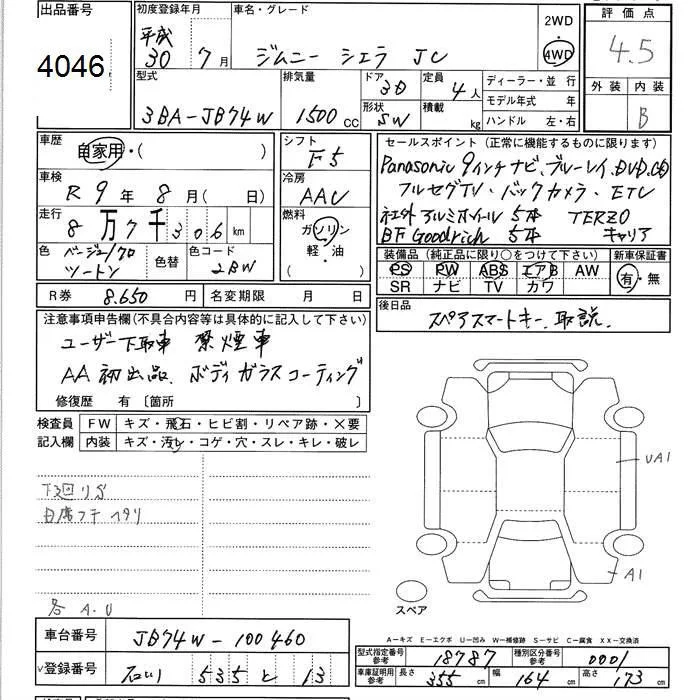 出品番号 4046
初度登録年月 平成 30 7月
車名・グレード ジムニー シエラ JC
2WD・4WD
評価点 4.5
外装 内装 B
型式 3BA-JB74W
排気量 1500 CC
ドア 3D
形状 SW
定員 4人
積載 kg
ディーラー・並 行
モデル年式 年
ハンドル 左・右
車歴 自家用・( )
シフト F5
車検 R9年8月( 日)
冷房 AAC
走行 8万7千306km
燃料 ガソリン
軽・油
( )
色 ベージュ/クロ
ツートン
色替
色コード 2BW
セールスポイント(正常に機能するものに限ります)
Panasonic 9インチナビ、ブルーレイ、DVD、CD
フルセグTV・バックカメラ・ETC
社外アルミホイール 5本 TERZO
BF Goodrich 5本 キャリア
装備品(純正品に限り○をつけて下さい) 新車保証書
PS PW ABS エアB AW 有・無
SR ナビ TV カワ
R券 8.650円
名変期限 月 日
後日品 スペアスマートキー、取説.
注意事項申告欄(不具合内容等は具体的に記入して下さい)
ユーザー下取車 禁煙車
AA初出品、ボディガラスコーティング
修復歴 有〔箇所 〕
検査員 FW キズ・飛石・ヒビ割・リペア跡・×要
記入欄 内装 キズ・汚レ・コゲ・穴・スレ・キレ・破レ
下廻りサ
各 A.U
UA1
A1
スペア
A-キズ E-エクボ U-凹み W-補修跡 S-サビ C-腐食 XX-交換済
車台番号 JB74W-100460
型式指定番号 参考 18787
種別区分番号 参考 0001
登録番号 石川 535 と 13
車庫証明用 参考 長さ 355cm 幅 164cm 高さ 173cm